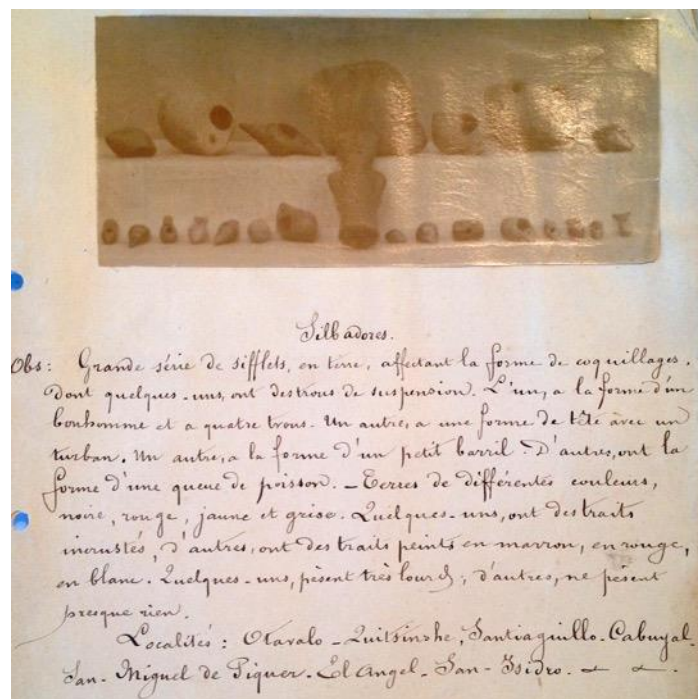 Silbadores.
Obs: Grande série de sifflets, en terre, affectant la forme de coquillages.
Dont quelques-uns, ont des trous de suspension. L'un, a la forme d'un
bonhomme et a quatre trous. Un autre, a une forme de tête avec un
turban. Un autre, a la forme d'un petit barril. D'autres, ont la
forme d'une queue de poisson. _ Terres de différentes couleurs,
noire, rouge, jaune et grise. Quelques-uns, ont des traits
incrustés, d'autres, ont des traits peints en marron, en rouge,
en blanc. Quelques-uns, pèsent très lourds; d'autres, ne pèsent
presque rien.
Localités: Otavalo - Quitsinshe, Santiaguillo - Cabuyal -
San-Miguel de Piquer. El Angel - San-Isidro.